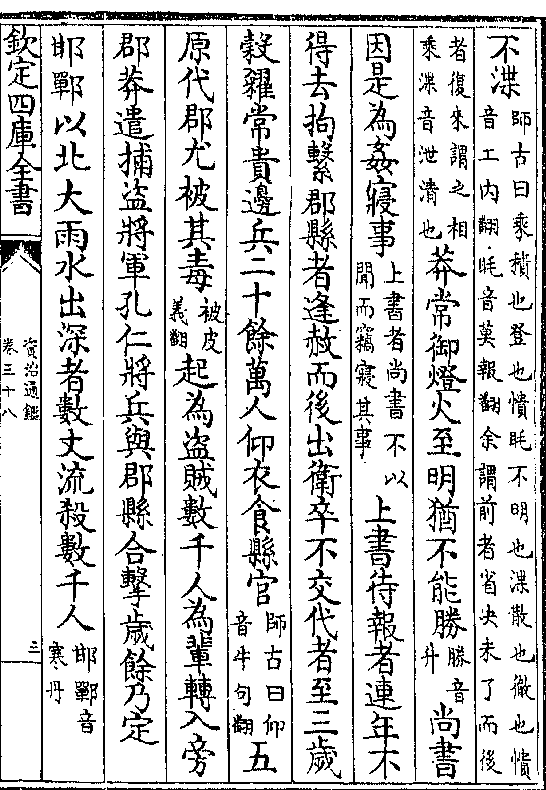 不渫師古曰乘積也登也憒眊不明也渫散也徹也憒
音工内翻眊音莫報翻余謂前者省决未了而後
者復來謂之相
乘渫音泄潰也莽常御燈火至明猶不能勝勝音
升尚書
因是為姦寢事上書者尚書不以
聞而竊寢其事上書待報者連年不
得去拘繫郡縣者逢赦而後出衛卒不交代者至三歲
穀糴常貴邊兵二十餘萬人仰衣食縣官師古曰仰
音牛向翻五
原代郡尤被其毒被皮
義翻起為盜賊數千人為輩轉入旁
郡莽遣捕盜將軍孔仁將兵與郡縣合擊歲餘乃定
邯鄲以北大雨水出深者數丈流殺數千人邯鄲音
寒丹
欽定四庫全書
資治通鑑
卷三十八
三